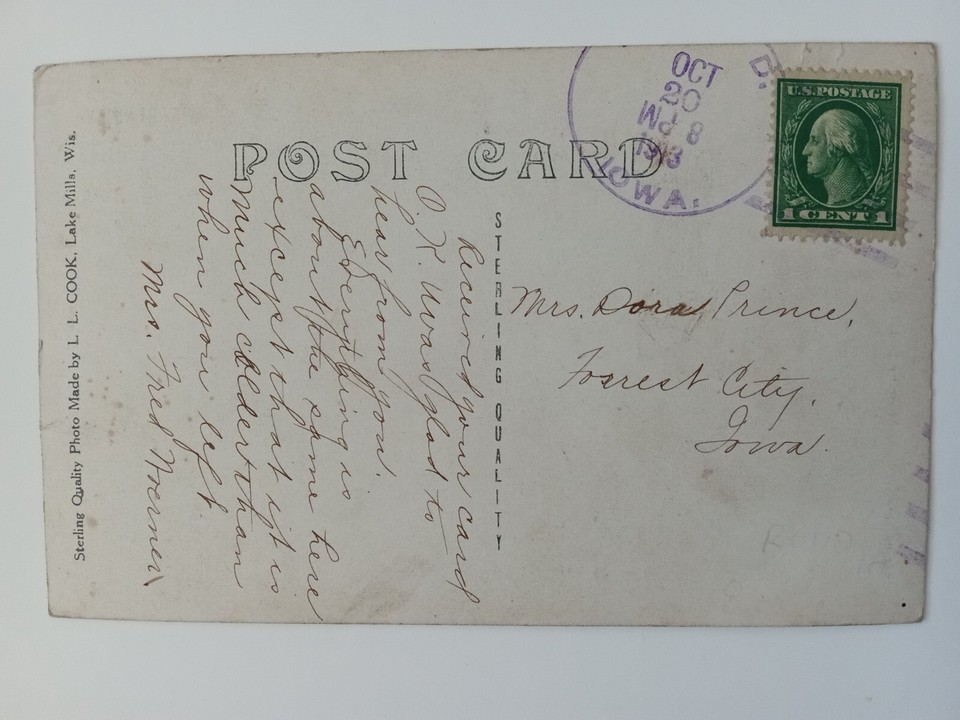 POST CARD
OCT
20
1913
IOWA.
D.
U.S. POSTAGE
1 CENT 1
STERLING QUALITY
Mrs. Dora Prince,
Forrest City,
Iowa.
Received your card
O.K. Was glad to
hear from you.
Everything is
about the same here
except that it is
much colder than
when you left.
Mrs. Fred Woerner
Sterling Quality Photo Made by L. L. COOK, Lake Mills, Wis.